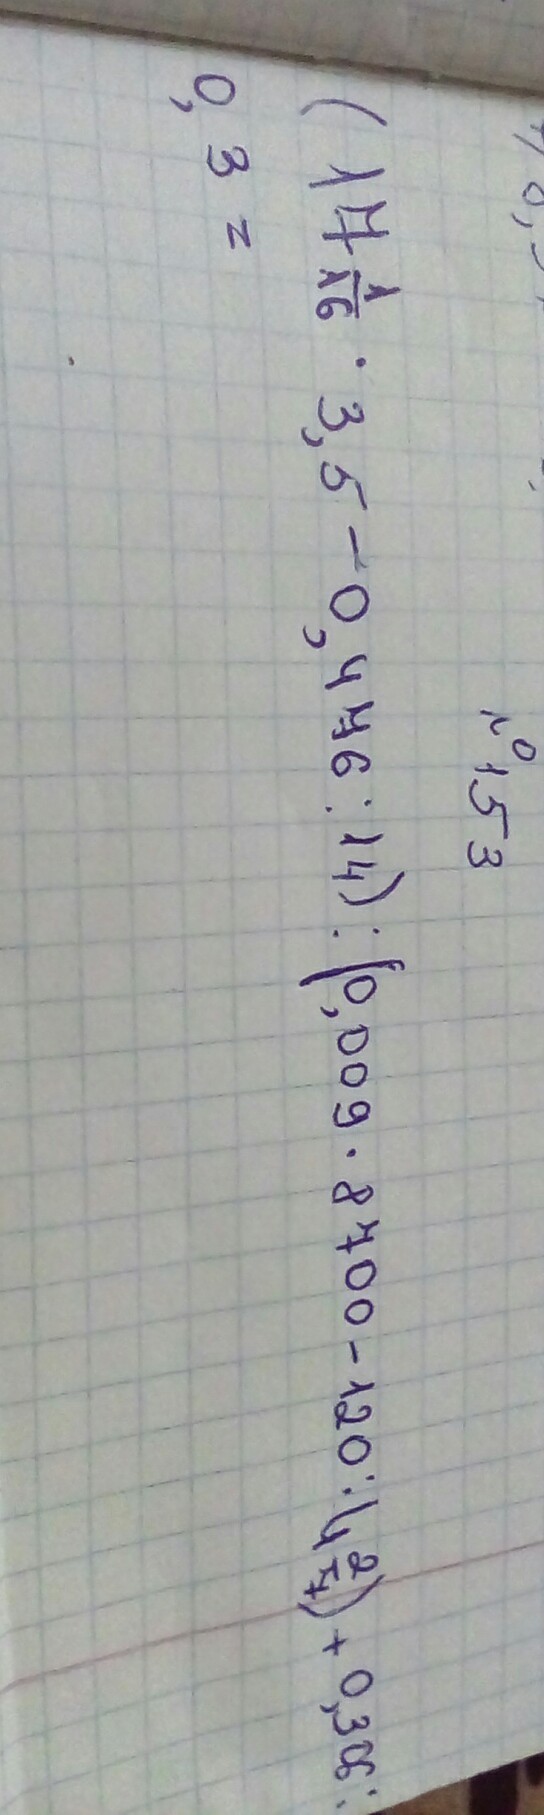 № 153
(17 1/16 · 3,5 - 0,476 : 14) : (0,009 · 8700 - 120 : 4 2/7) + 0,36 :
0,3 =